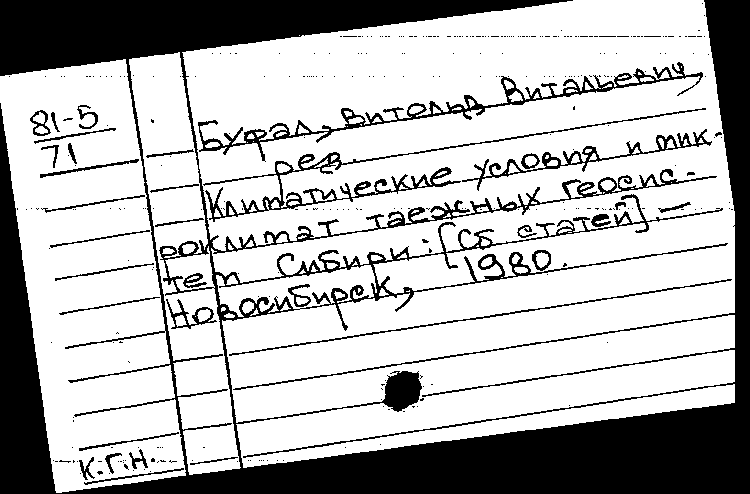 81-5
71
Буфал, Витольд Витальевич,
ред.
Климатические условия и мик-
роклимат таежных геосис-
тем Сибири: [Сб статей]. —
Новосибирск, 1980.
К.Г.Н.